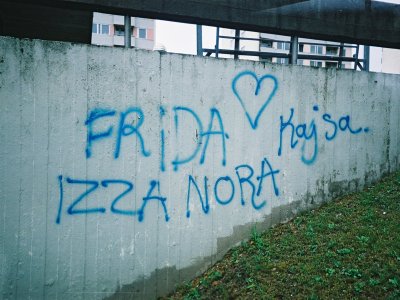 FRIDA Kajsa.
IZZA NORA